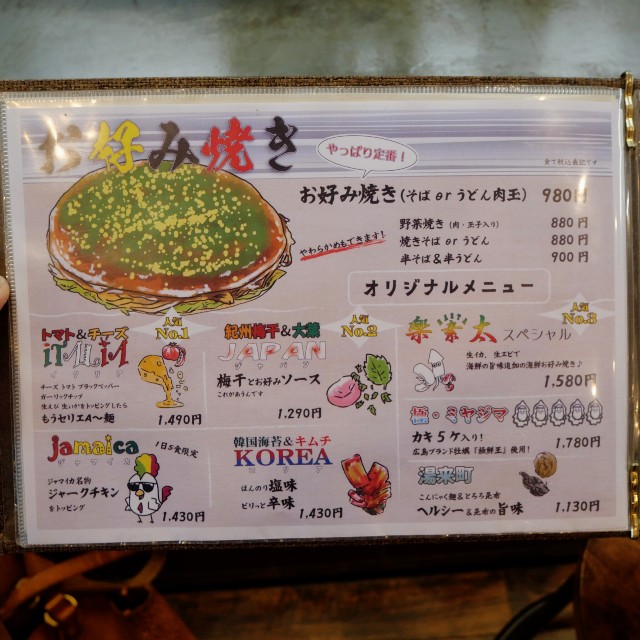 お好み焼き
やっぱり定番！
全て税込表記です
お好み焼き（そば or うどん肉玉） 980円
やわらかめもできます！
野菜焼き（肉・玉子入り） 880円
焼きそば or うどん 880円
半そば＆半うどん 900円
オリジナルメニュー
人気 No.1
トマト＆チーズ
イタリア
チーズ トマト ブラックペッパー
ガーリックチップ
生えび 生いかをトッピングしたら
もうセリエA〜麺 1.490円
人気 No.2
紀州梅干＆大葉
JAPAN
ジャパン
梅干とお好みソース
これが合うんです
1.290円
人気 No.3
スペシャル
生イカ、生エビで
海鮮の旨味追加の海鮮お好み焼き♪
1.580円
極・ミヤジマ
カキ5ケ入り！
広島ブランド牡蠣『極鮮王』使用！ 1.780円
jamaica
ジャマイカ
1日5食限定
ジャマイカ名物
ジャークチキン
をトッピング
1.430円
韓国海苔＆キムチ
KOREA
コリア
ほんのり塩味
ピリっと辛味 1.430円
湯来町
こんにゃく麺＆とろろ昆布
ヘルシー＆昆布の旨味 1.130円